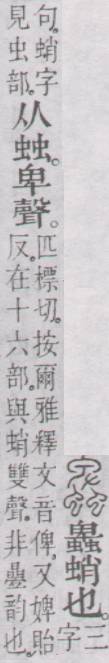 蛸也。
三字
句。蛸字
見虫部。
从䖵。卑聲。
匹標切。按爾雅釋文音俾。又婢貽
反。在十六部。與蛸雙聲。非疊韵也。